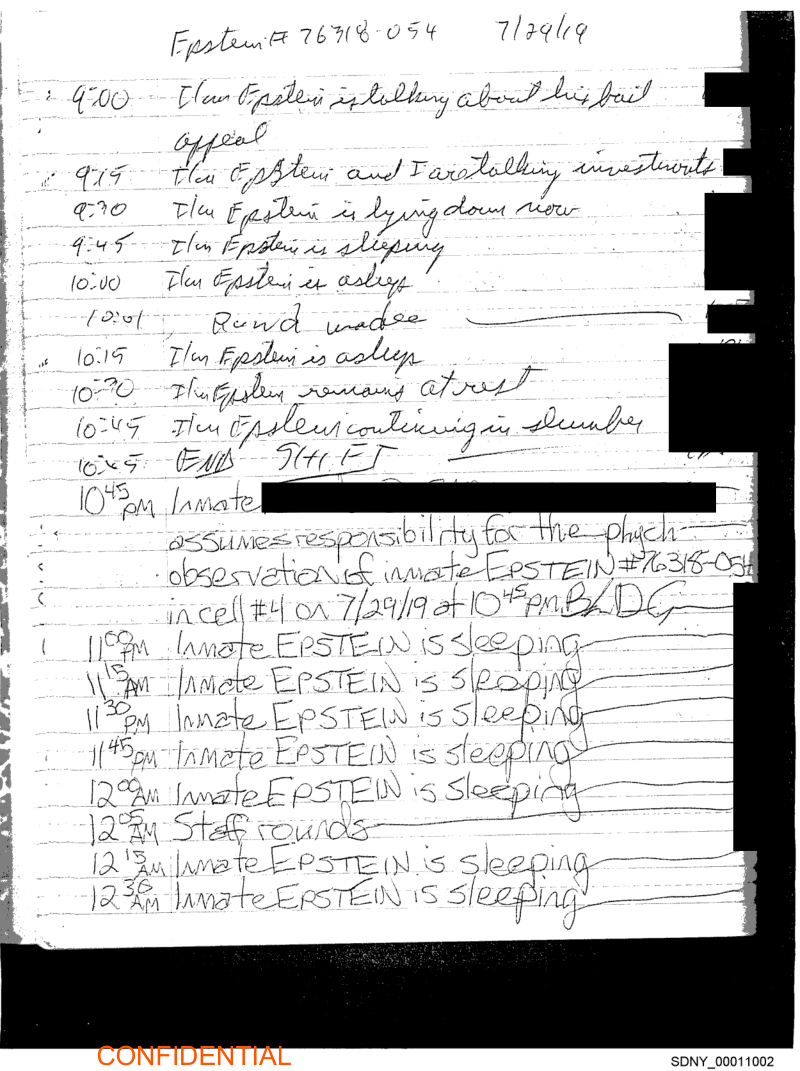 Epstein # 76318-054 7/29/19
9:00 I/m Epstein is talking about his bail
appeal
9:15 I/m Epstein and I are talking investments
9:30 I/m Epstein is lying down now
9:45 I/m Epstein is sleeping
10:00 I/m Epstein is asleep
10:01 Round made
10:15 I/m Epstein is asleep
10:30 I/m Epstein remains at rest
10:45 I/m Epstein continuing in slumber
10:45 END SHIFT
10:45 PM Inmate
assumes responsibility for the phych
observation of inmate EPSTEIN #76318-054
in cell #4 on 7/29/19 at 10:45 PM.
11:00 PM Inmate EPSTEIN is sleeping
11:15 PM Inmate EPSTEIN is sleeping
11:30 PM Inmate EPSTEIN is sleeping
11:45 PM Inmate EPSTEIN is sleeping
12:00 AM Inmate EPSTEIN is sleeping
12:05 AM Staff rounds
12:15 AM Inmate EPSTEIN is sleeping
12:30 AM Inmate EPSTEIN is sleeping
CONFIDENTIAL
SDNY_00011002